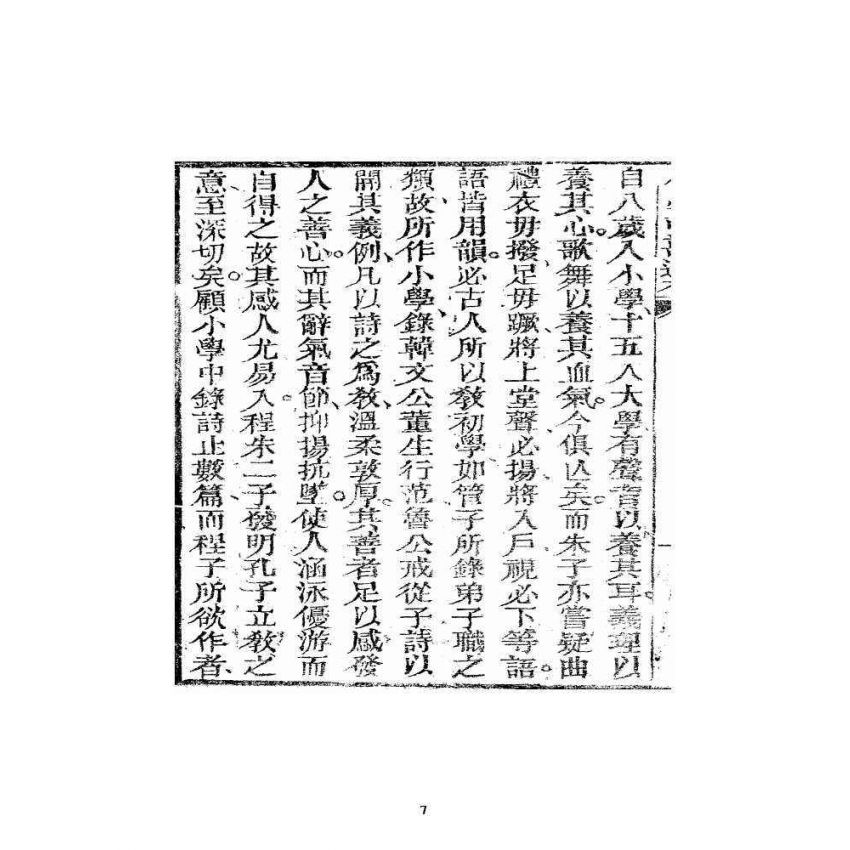 自八歲入小學、十五入大學有聲音以養其耳。義理以
養其心。歌舞以養其血氣。今俱亾矣。而朱子亦嘗疑曲
禮衣毋撥、足毋蹶、將上堂聲必揚、將入戶視必下等語。
語皆用韻。必古人所以敎初學、如管子所錄弟子職之
類、故所作小學、錄韓文公董生行、范魯公戒從子詩、以
開其義例。凡以詩之爲敎、溫柔敦厚。其善者足以感發
人之善心。而其辭氣音節、抑揚抗墜。使人涵泳優游而
自得之。故其感人尤易入。程朱二子、發明孔子立敎之
意、至深切矣。顧小學中錄詩止數篇、而程子所欲作者、
7